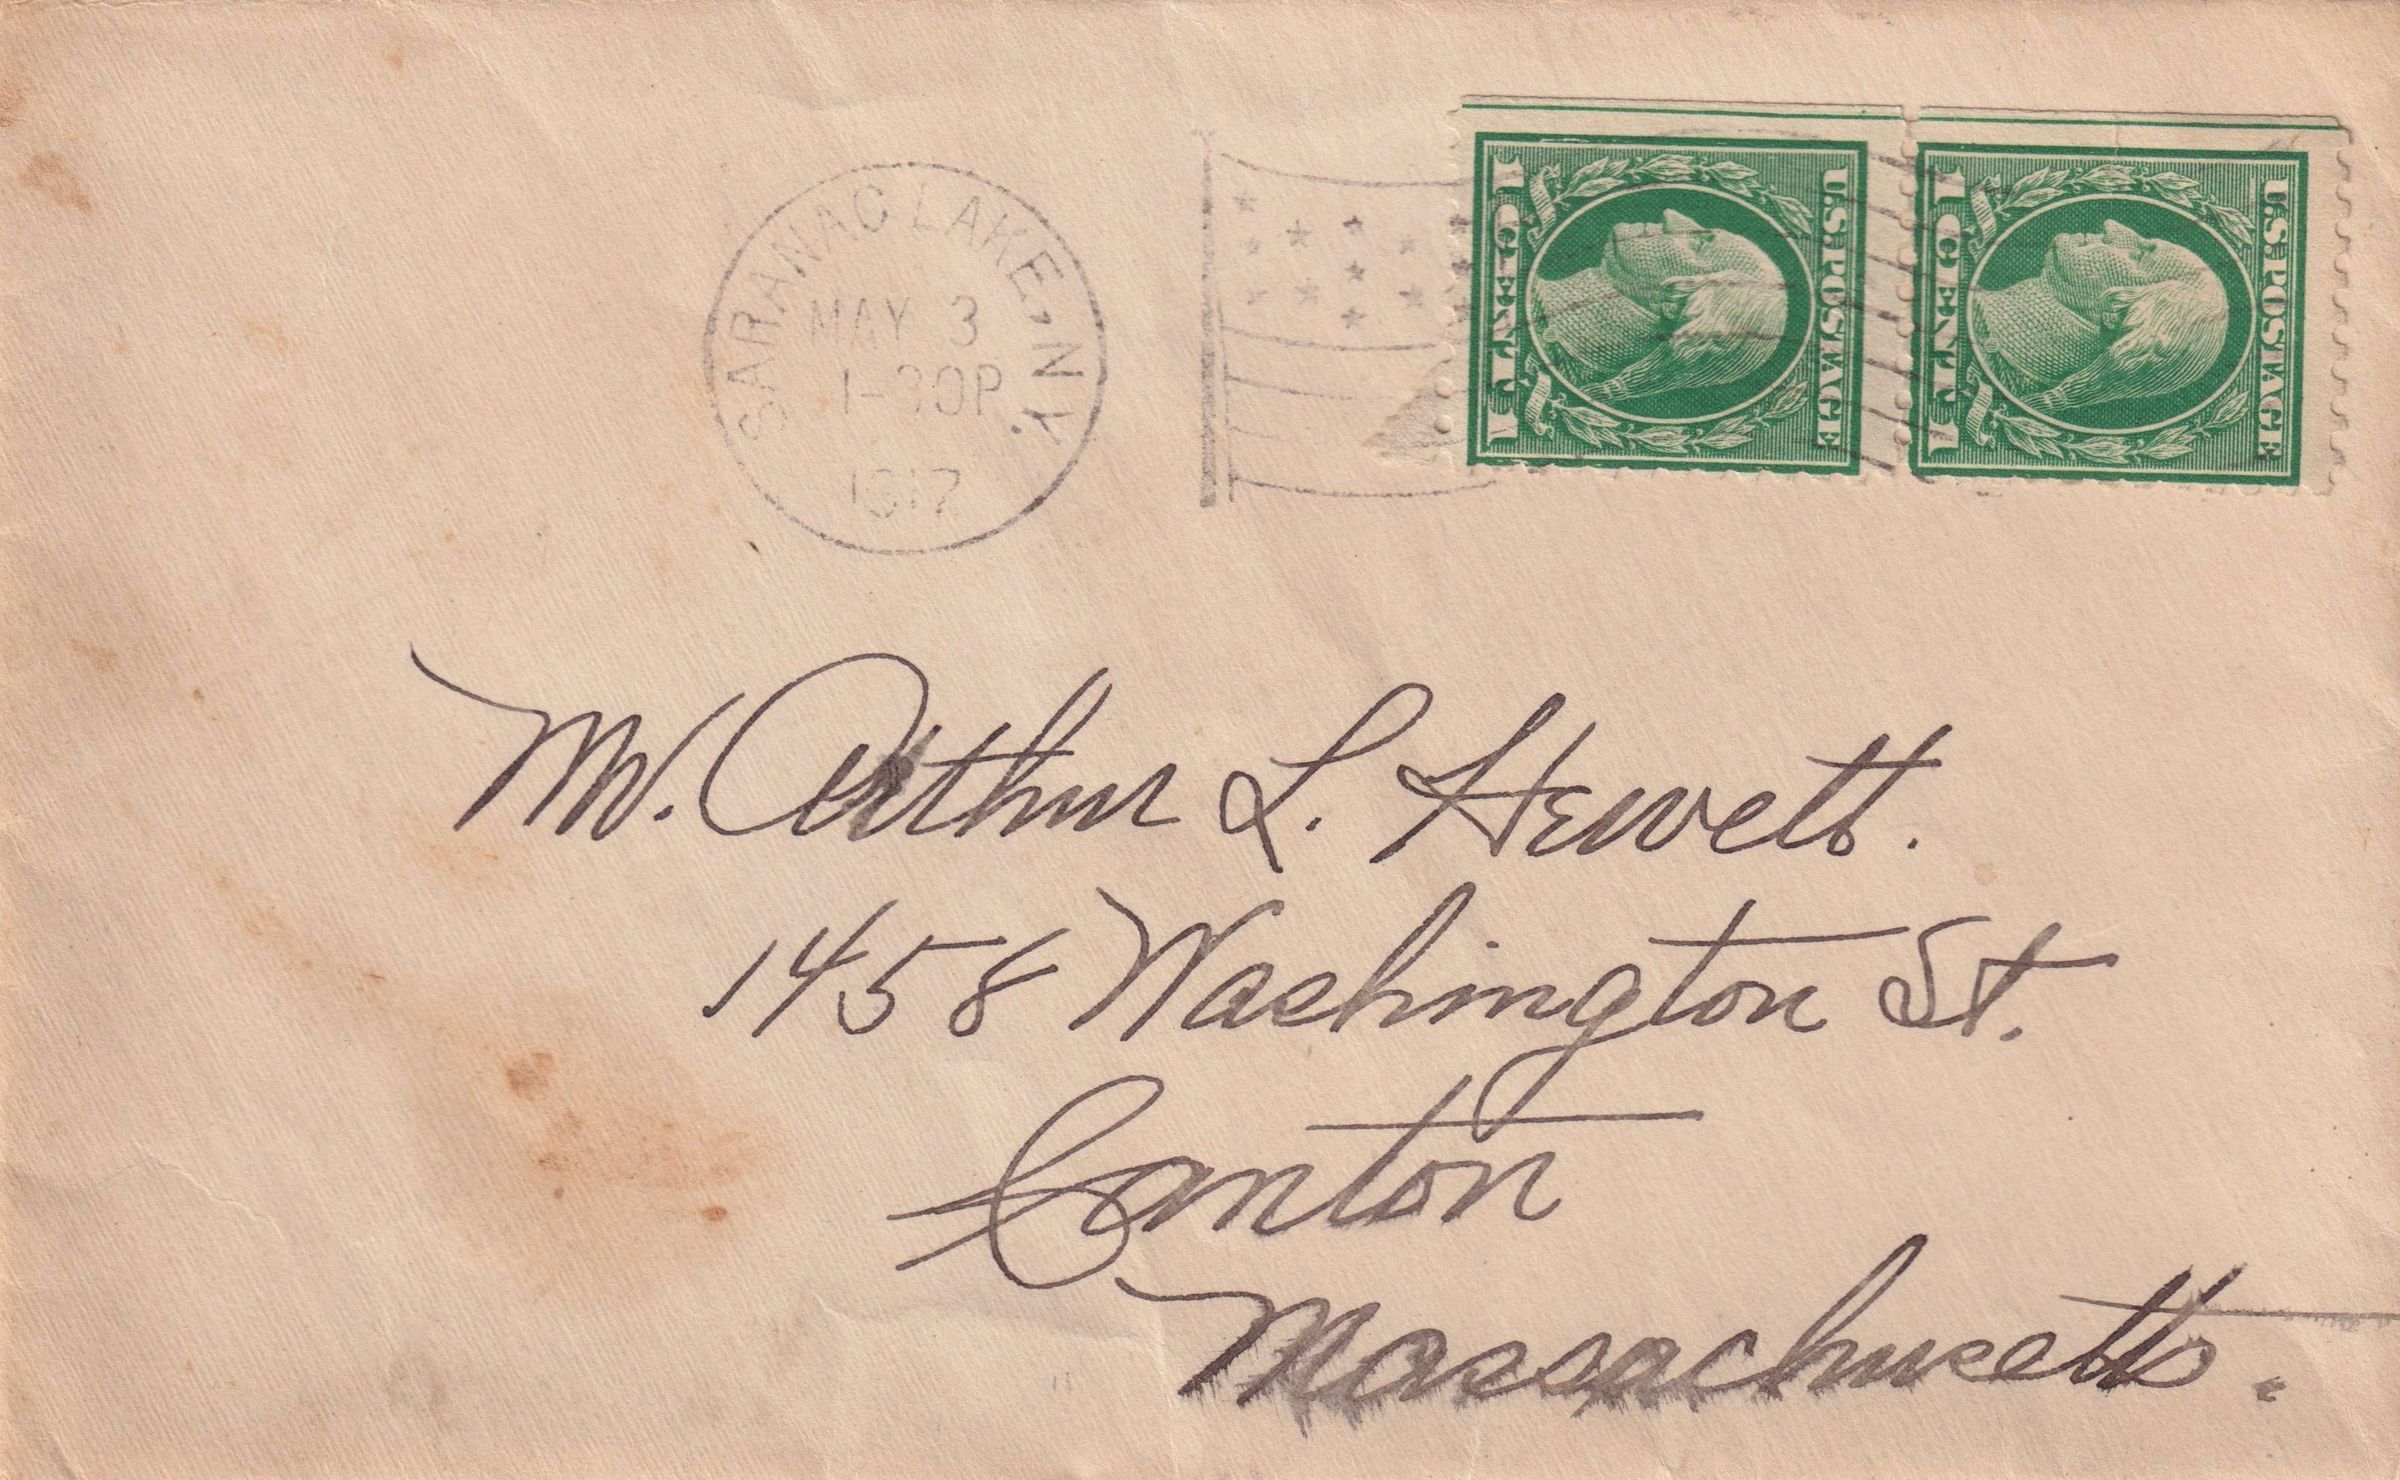 SARANAC LAKE, N.Y.
MAY 3
1-30P
1917
U.S. POSTAGE
1 CENT 1
U.S. POSTAGE
1 CENT 1
Mr. Arthur L. Hewett.
1458 Washington St.
Canton
Massachusetts.